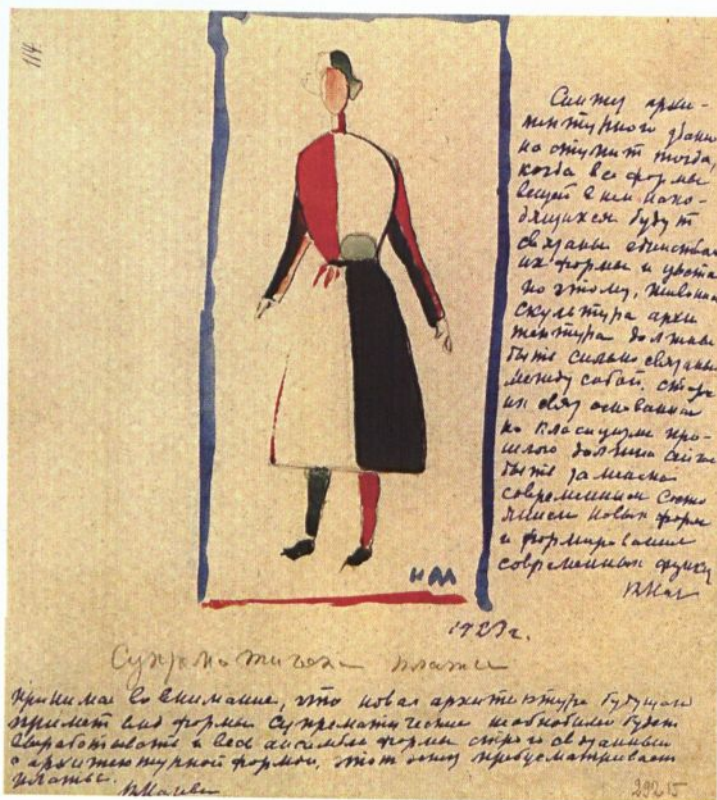 114.
Синтез архи-
тектурного здани
наступит тогда,
когда все формы
вещей в нем нахо-
дящихся будут
связаны единством
их формы и цвета
по этому, живопис
скульптура архи
тектура должны
быть сильно связаны
между собой. стар
их связ основанная
на класицизме про-
шлого должна сейчас
быть заменена
современным состо
янием новых форм
и формирования
современных функц
КМал
КМ
1923г.
Супрематическ платье
принимая во внимание, что новая архитектура будущаго
примет вид формы супрематические необходимо будет
вырабатывать и весь ансамбль формы строго связанный
с архитектурной формой, этот эскиз предусматривает
платье.
КМалеви
29215